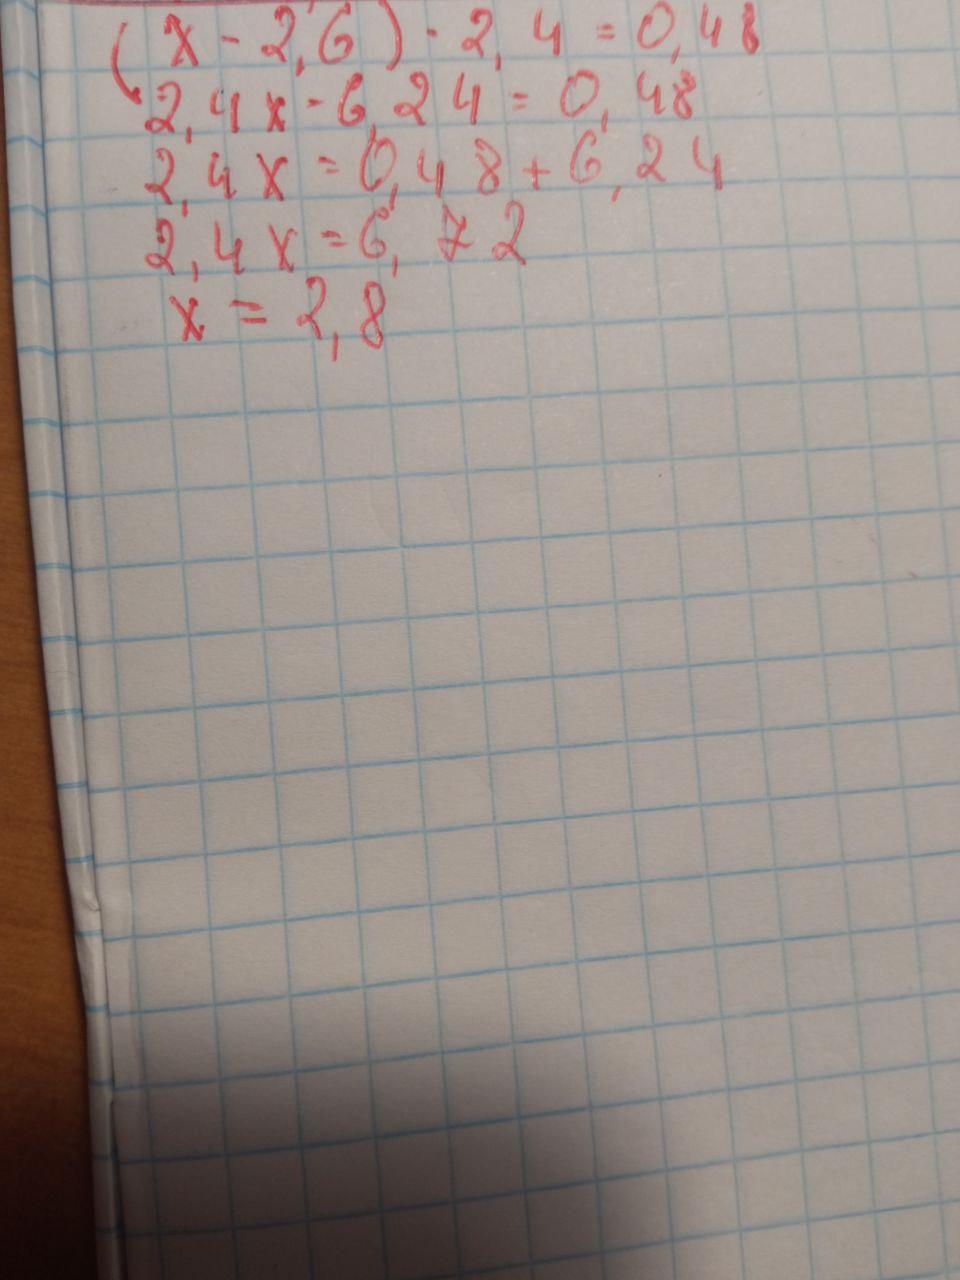 (x - 2,6) · 2,4 = 0,48
2,4x - 6,24 = 0,48
2,4x = 0,48 + 6,24
2,4x = 6,72
x = 2,8